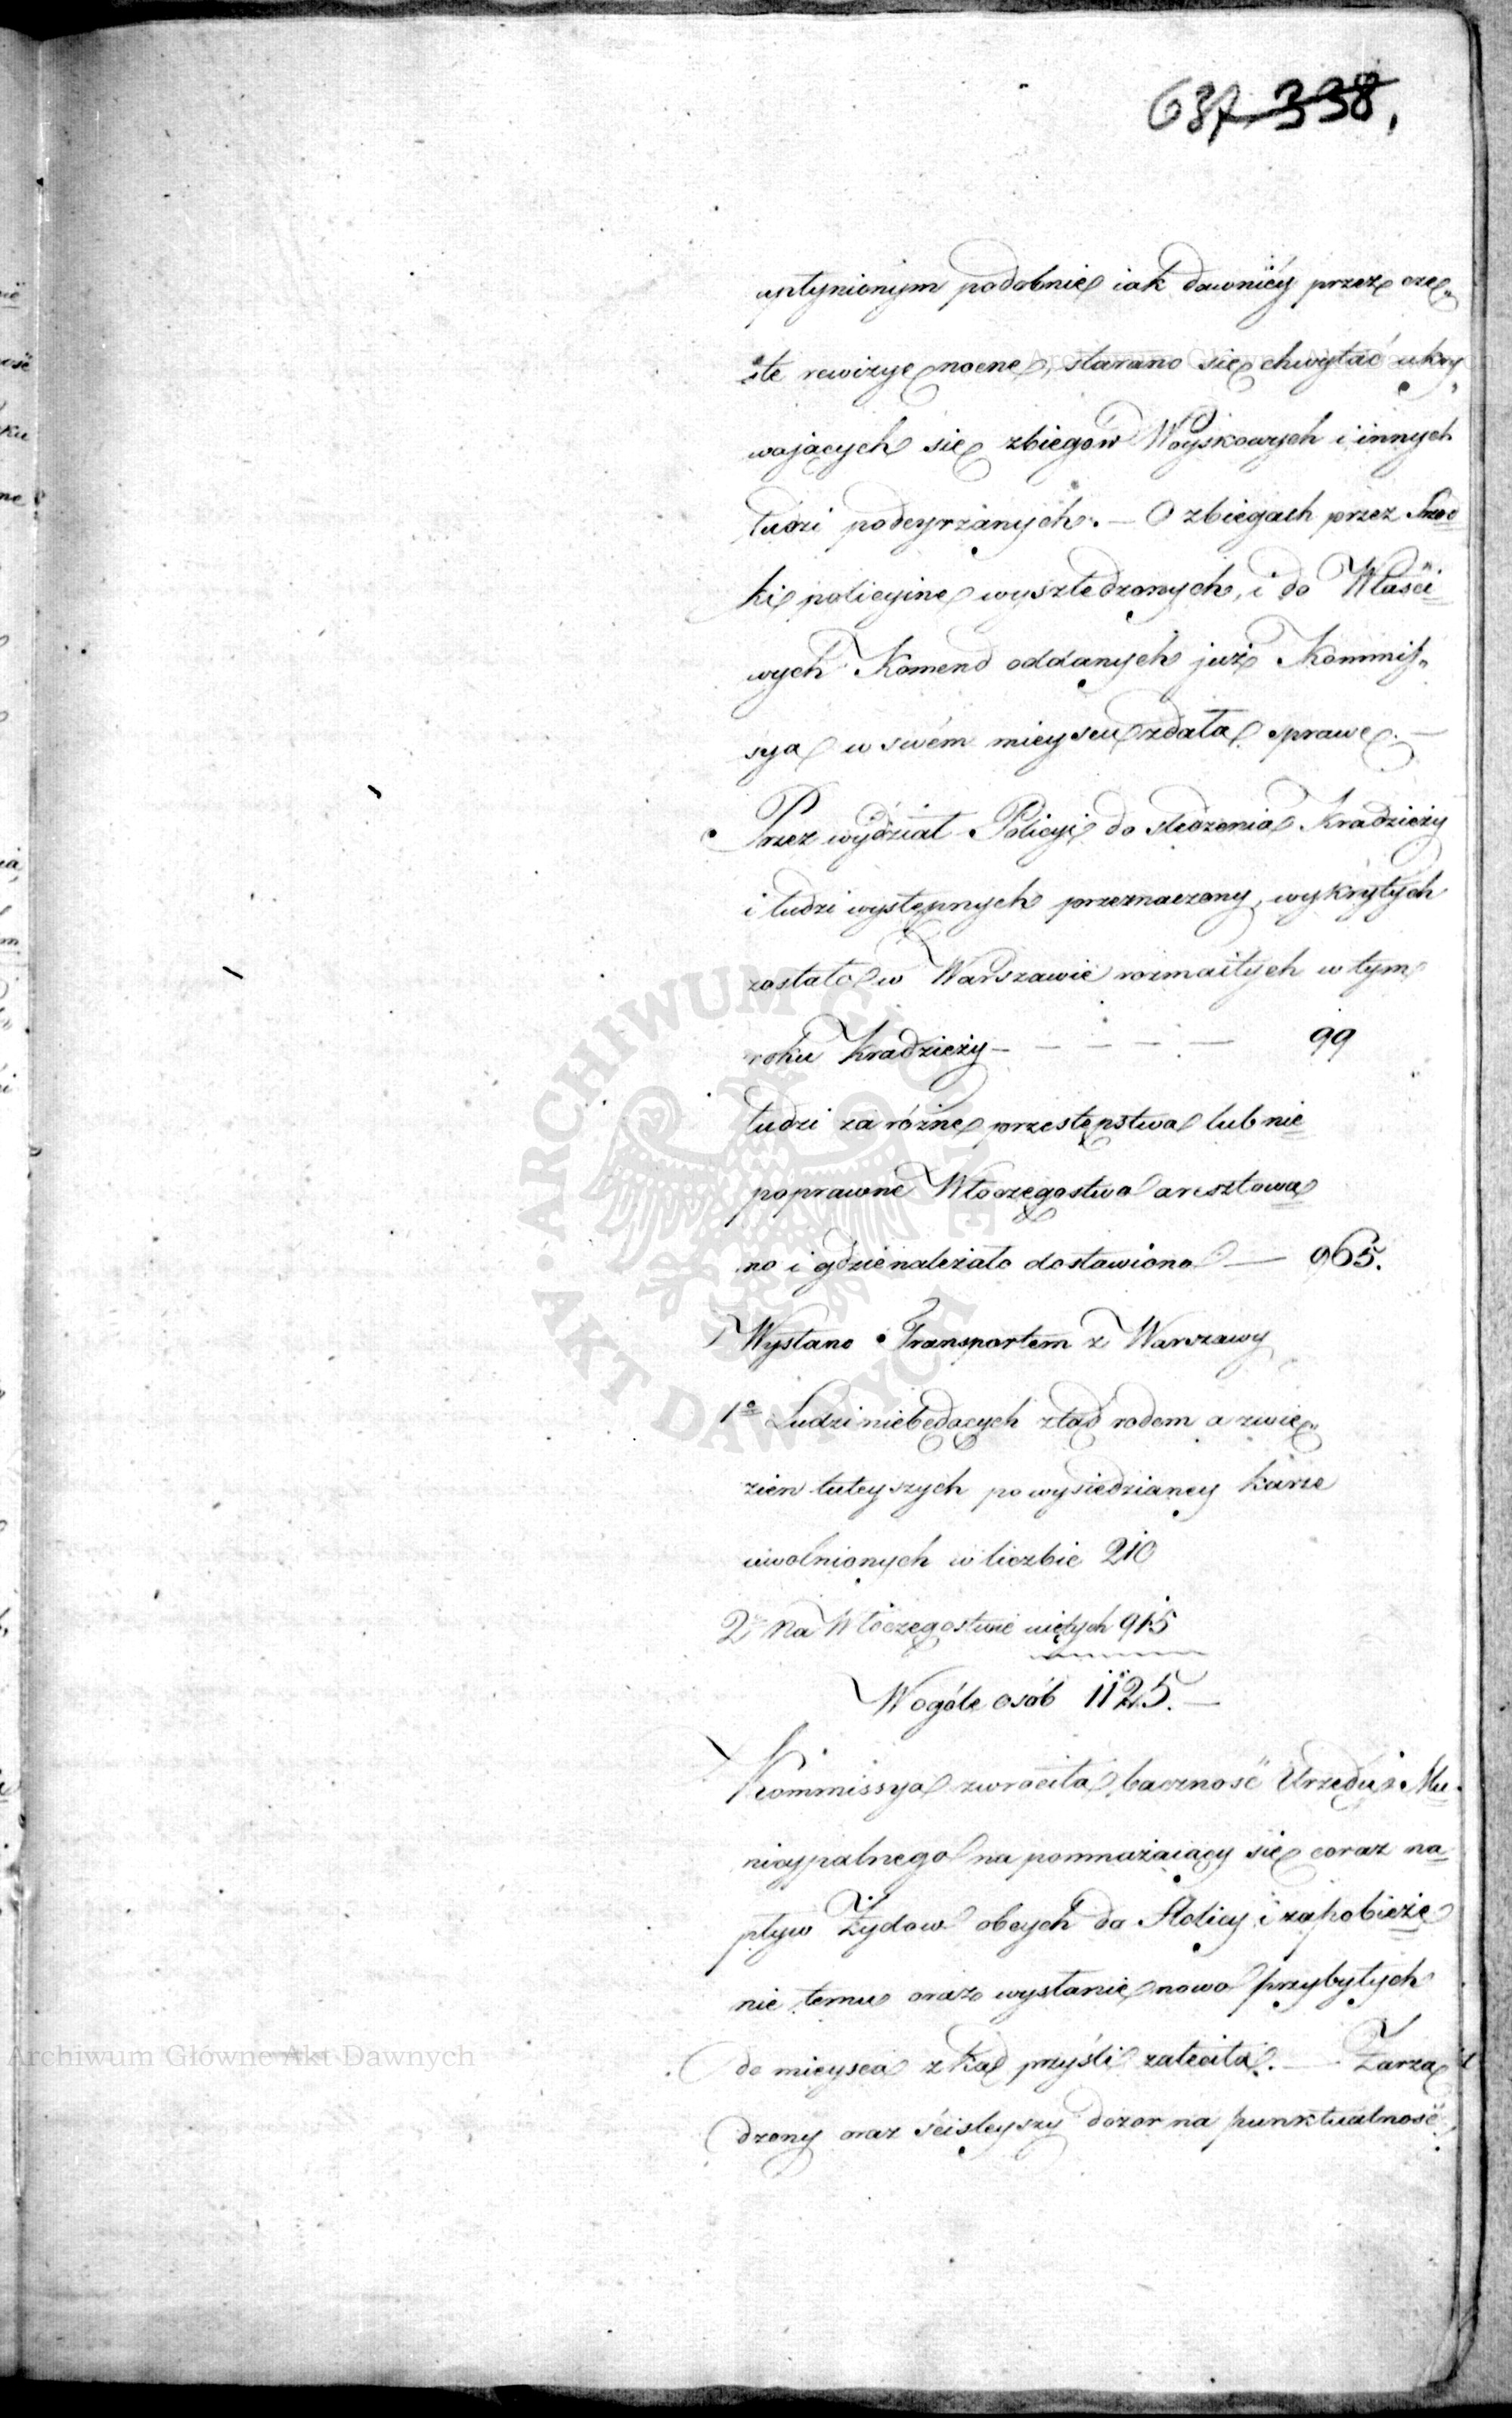 637 338,
upłynionym podobnie iak dawniéy przez czę„
ste rewizye nocne, starano się chwytać ukry„
wających się zbiegow Woyskowych i innych
ludzi podeyrzanych. — O zbiegach przez Środ=
ki policyine wyszledzonych, i do Właści=
wych Komend oddanych już Kommis„
sya w swém mieyscu zdała sprawę. —
Przez wydział Policyi do śledzenia Kradzieży
i ludzi występnych przeznaczony, wykrytych
zostało w Warszawie rozmaitych w tym
roku Kradzieży — — — — — 99
ludzi za różne przestępstwa lub nie=
poprawne Włoczęgostwo aresztowa=
no i gdzie należało dostawiono — 965.
Wysłano Transportem z Warszawy
1o Ludzi niebędących ztąd rodem a z wię„
zien tuteyszych po wysiedzianey karze
uwolnionych w liczbie 210
2o Na Włoczęgostwie uiętych 915
Wogóle osób 1125. —
Kommissya zwrociła baczność Urzędu Mu=
nicypalnego na pomnażaiący się coraz na=
pływ Żydow obcych do Stolicy i zapobieże=
nie temu oraz wysłanie nowo przybytych
do mieysca z kąd przyśli zaleciła. — Zarzą
dzony oraz ściśleyszy dozor na punktualność
Archiwum Główne Akt Dawnych
ARCHIWUM GŁÓWNE AKT DAWNYCH